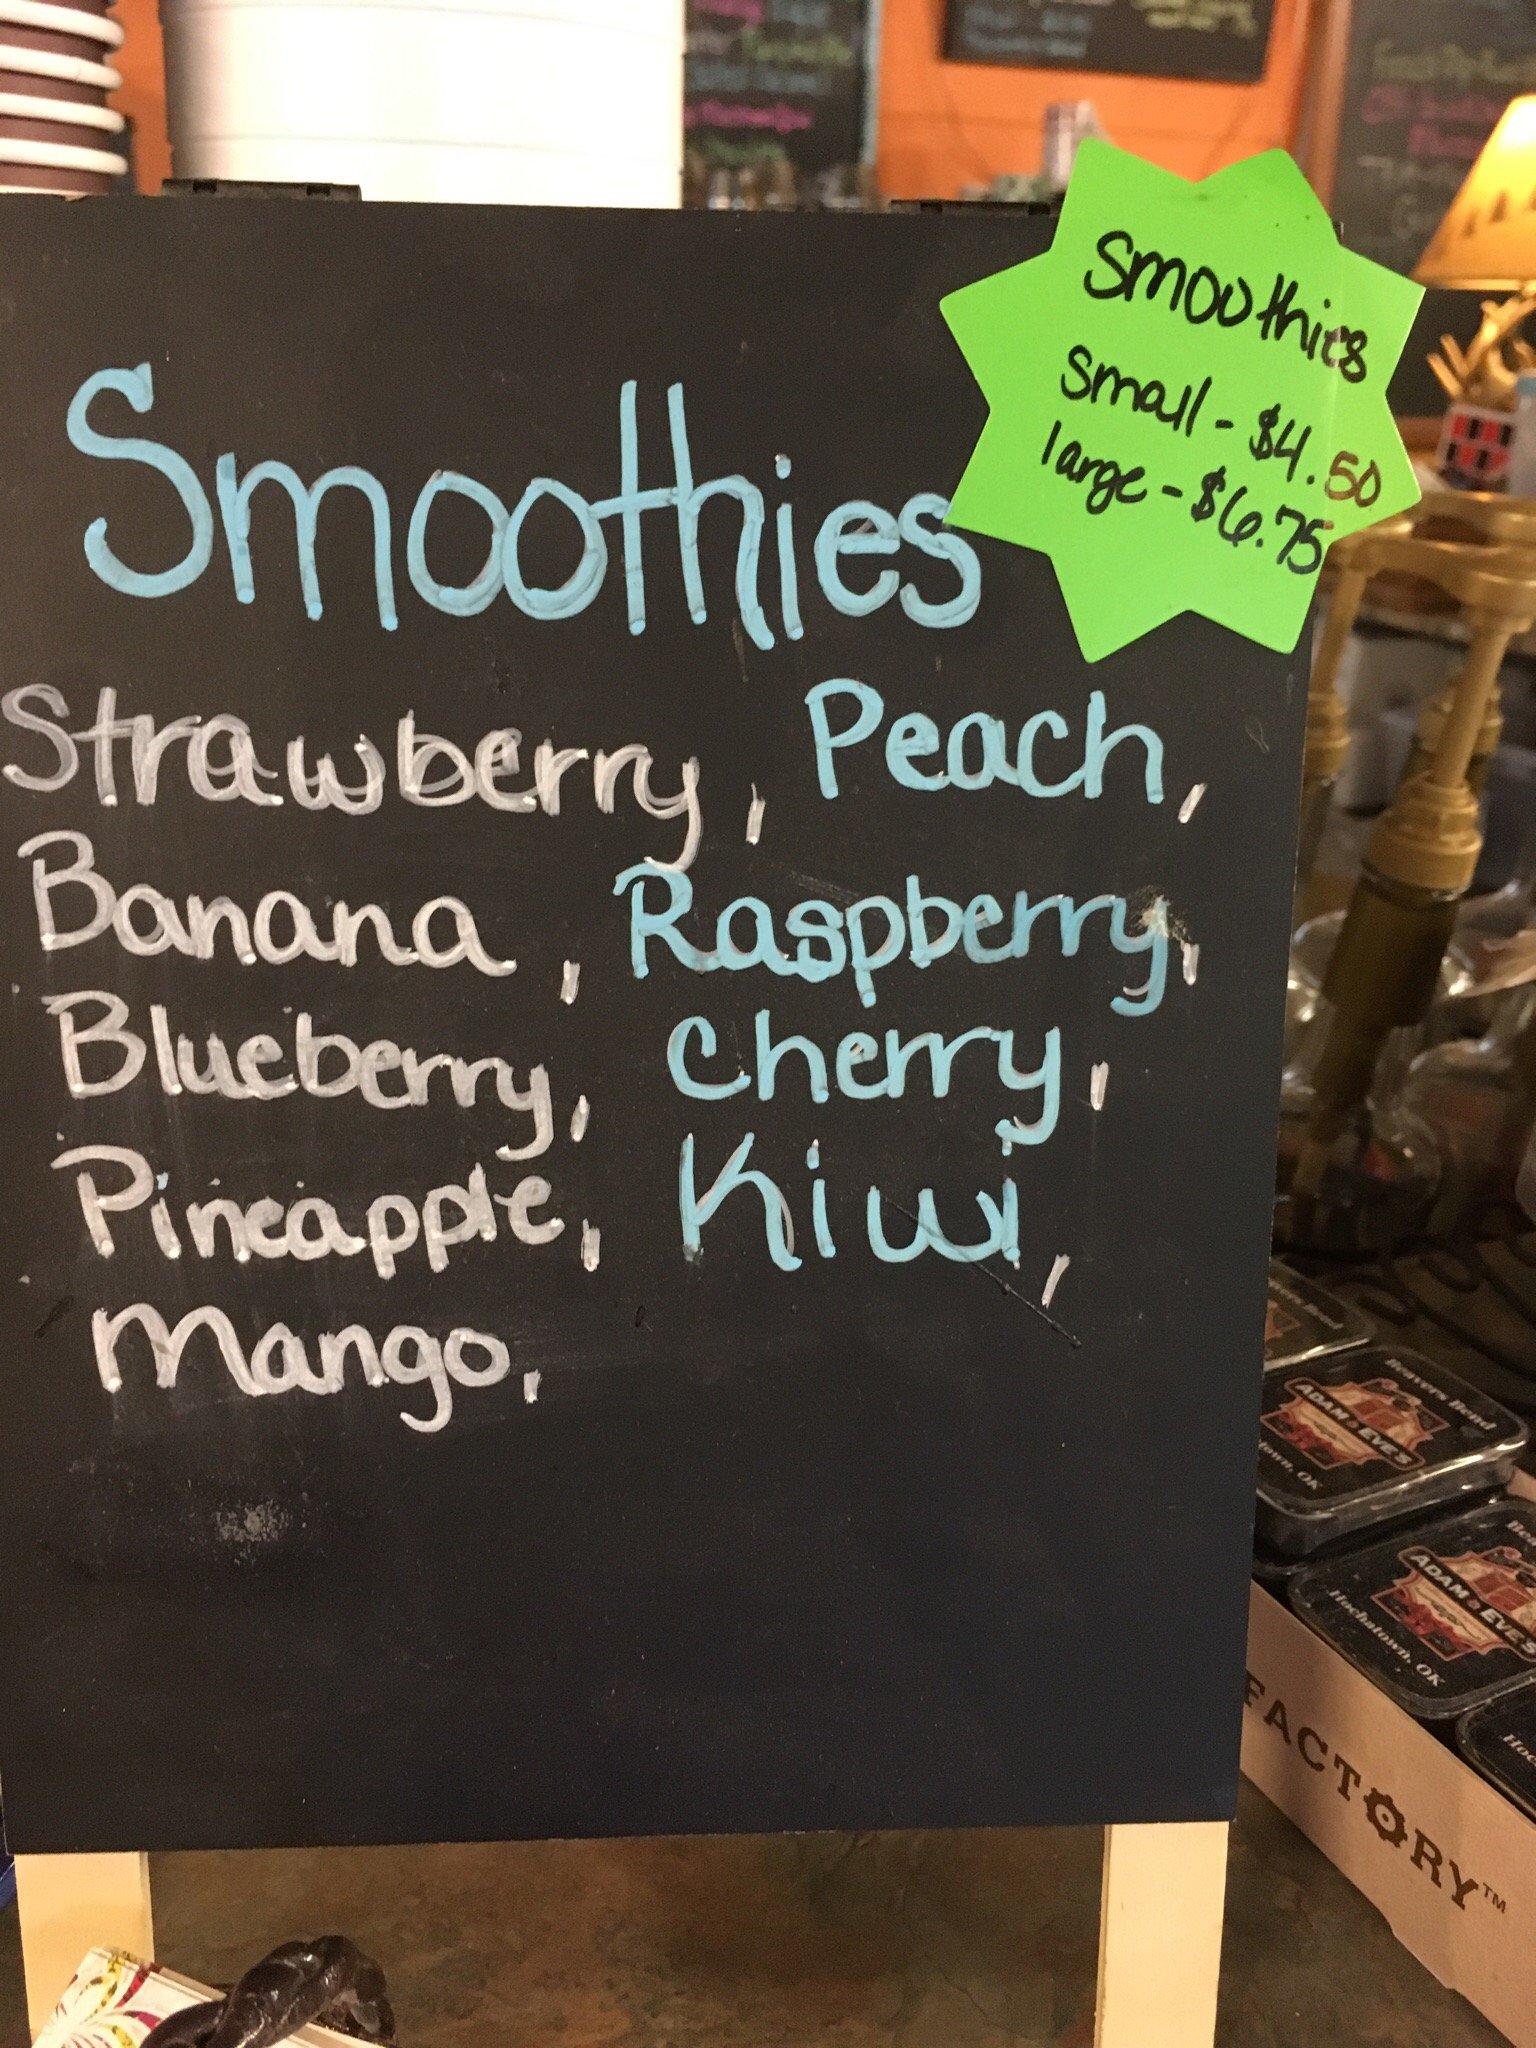 Smoothies
small - $4.50
large - $6.75
Smoothies
Strawberry, Peach,
Banana, Raspberry,
Blueberry, Cherry,
Pineapple, Kiwi,
Mango,
Beavers Bend
ADAM & EVE'S
Hochatown, OK
ADAM & EVE'S
Hochatown, OK
FACTORY™